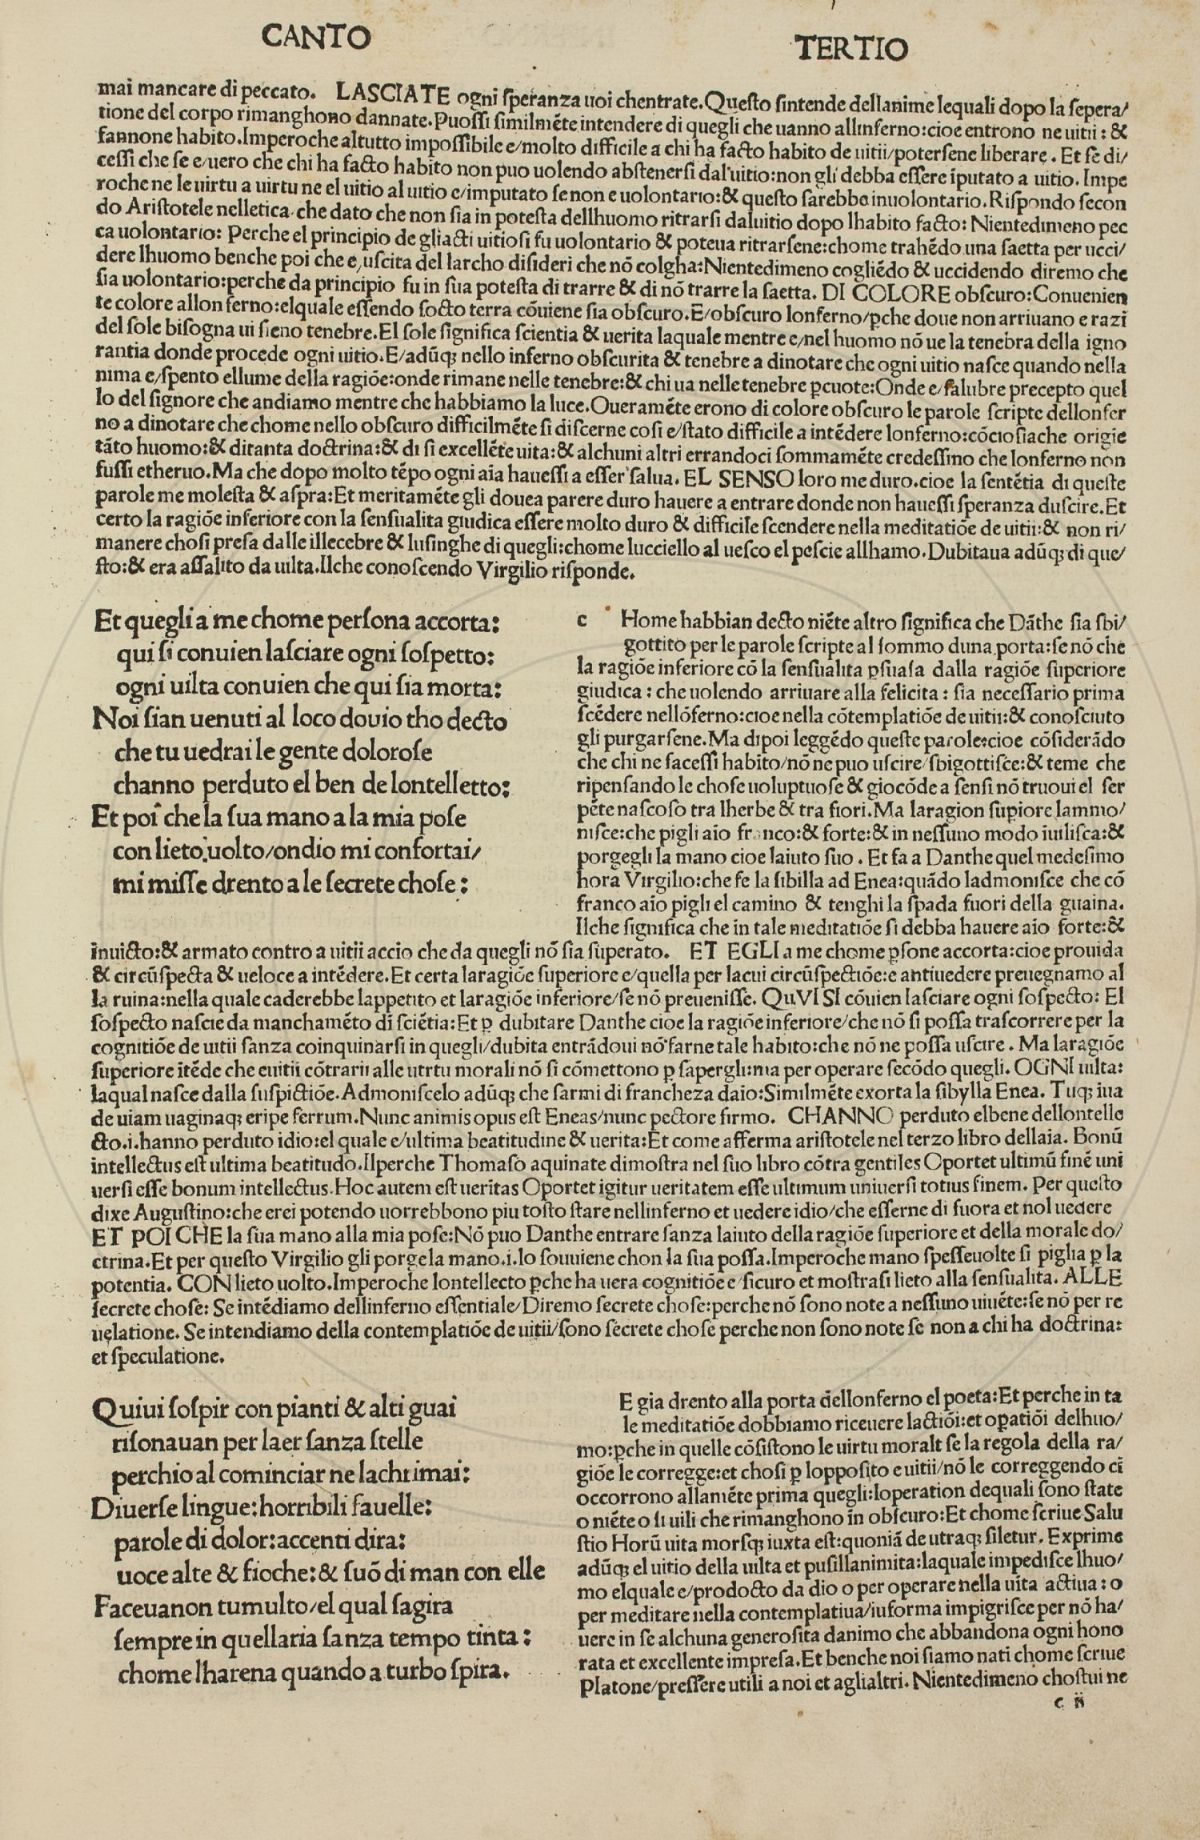 CANTO TERTIO
mai mancare di peccato. LASCIATE ogni ſperanza uoi chentrate. Queſto ſintende dellanime lequali dopo la ſepera/
tione del corpo rimanghono dannate. Puoſſi ſimilmēte intendere di quegli che uanno allinferno: cioe entrono ne uitii: &
fannone habito. Imperoche altutto impoſſibile e/molto difficile a chi ha facto habito de uitii/poterſene liberare. Et ſe di/
ceſſi che ſe e/uero che chi ha facto habito non puo uolendo abſtenerſi dal uitio: non gli debba eſſere īputato a uitio. Impe
roche ne le uirtu a uirtu ne el uitio al uitio e/imputato ſe non e uolontario: & queſto ſarebbe inuolontario. Riſpondo ſecon
do Ariſtotele nelletica. che dato che non ſia in poteſta dellhuomo ritrarſi daluitio dopo lhabito facto: Nientedimeno pec
ca uolontario: Perche el principio de gliacti uitioſi fu uolontario & poteua ritrarſene: chome trahēdo una ſaetta per ucci/
dere lhuomo benche poi che e/uſcita del larcho diſideri che nō colgha: Nientedimeno cogliēdo & uccidendo diremo che
ſia uolontario: perche da principio fu in ſua poteſta di trarre & di nō trarre la ſaetta. DI COLORE obſcuro: Conuenien
te colore allon ferno: elquale eſſendo ſocto terra cōuiene ſia obſcuro. E/obſcuro lonferno/ꝑche doue non arriuano e razi
del ſole biſogna ui ſieno tenebre. El ſole ſignifica ſcientia & uerita laquale mentre e/nel huomo nō ue la tenebra della igno
rantia donde procede ogni uitio. E/adūqꝫ nello inferno obſcurita & tenebre a dinotare che ogni uitio naſce quando nella
nima e/ſpento ellume della ragiōe: onde rimane nelle tenebre: & chi ua nelle tenebre ꝑcuote: Onde e/ſalubre precepto quel
lo del ſignore che andiamo mentre che habbiamo la luce. Oueramēte erono di colore obſcuro le parole ſcripte dellonfer
no a dinotare che chome nello obſcuro difficilmēte ſi diſcerne coſi e/ſtato difficile a intēdere lonferno: cōcioſiache origie
tāto huomo: & ditanta doctrina: & di ſi excellēte uita: & alchuni altri errandoci ſommamēte credeſſino che lonferno non
fuſſi etheruo. Ma che dopo molto tēpo ogni aīa haueſſi a eſſer ſalua. EL SENSO loro me duro. cioe la ſentētia di queſte
parole me moleſta & aſpra: Et meritamēte gli douea parere duro hauere a entrare donde non haueſſi ſperanza duſcire. Et
certo la ragiōe inferiore con la ſenſualita giudica eſſere molto duro & difficile ſcendere nella meditatiōe de uitii: & non ri/
manere choſi preſa dalle illecebre & luſinghe di quegli: chome lucciello al ueſco el peſcie allhamo. Dubitaua adūqꝫ di que/
ſto: & era aſſalito da uilta. Ilche conoſcendo Virgilio riſponde.
Et quegli a me chome perſona accorta:
qui ſi conuien laſciare ogni ſoſpetto:
ogni uilta conuien che qui ſia morta:
Noi ſian uenuti al loco douio tho decto
che tu uedrai le gente doloroſe
channo perduto el ben de lontelletto:
Et poi che la ſua mano a la mia poſe
con lieto uolto/ondio mi confortai/
mi miſſe drento a le ſecrete choſe:
c Home habbian decto niēte altro ſignifica che Dāthe ſia ſbi/
gottito per le parole ſcripte al ſommo duna porta: ſe nō che
la ragiōe inferiore cō la ſenſualita ꝑſuaſa dalla ragiōe ſuperiore
giudica: che uolendo arriuare alla felicita: ſia neceſſario prima
ſcēdere nellōferno: cioe nella cōtemplatiōe de uitii: & conoſciuto
gli purgarſene. Ma dipoi leggēdo queſte parole: cioe cōſiderādo
che chi ne faceſſi habito/nō ne puo uſcire/ſbigottiſce: & teme che
ripenſando le choſe uoluptuoſe & giocōde a ſenſi nō truoui el ſer
pēte naſcoſo tra lherbe & tra fiori. Ma laragion ſuꝑiore lammo/
niſce: che pigli aīo franco: & forte: & in neſſuno modo iuiliſca: &
porgegli la mano cioe laiuto ſuo. Et fa a Danthe quel medeſimo
hora Virgilio: che fe la ſibilla ad Enea: quādo ladmoniſce che cō
franco aīo pigli el camino & tenghi la ſpada fuori della guaina.
Ilche ſignifica che in tale meditatiōe ſi debba hauere aīo forte: &
inuicto: & armato contro a uitii accio che da quegli nō ſia ſuperato. ET EGLI a me chome ꝑſone accorta: cioe prouida
& circūſpecta & ueloce a intēdere. Et certa laragiōe ſuperiore e/quella per lacui circūſpectiōe: e antiuedere preuegnamo al
la ruina: nella quale caderebbe lappetito et laragiōe inferiore/ſe nō preueniſſe. QuVI SI cōuien laſciare ogni ſoſpecto: El
ſoſpecto naſcie da manchamēto di ſciētia: Et ꝑ dubitare Danthe cioe la ragiōe inferiore/che nō ſi poſſa traſcorrere per la
cognitiōe de uitii ſanza coinquinarſi in quegli/dubita entrādoui nō farne tale habito: che nō ne poſſa uſcire. Ma laragiōe
ſuperiore ītēde che euitii cōtrarii alle uirtu morali nō ſi cōmettono ꝑ ſapergli: ma per operare ſecōdo quegli. OGNI uilta:
laqual naſce dalla ſuſpictiōe. Admoniſcelo adūqꝫ che ſarmi di francheza daīo: Similmēte exorta la ſibylla Enea. Tuqꝫ iua
de uiam uaginaqꝫ eripe ferrum. Nunc animis opus eſt Eneas/nunc pectore firmo. CHANNO perduto elbene dellontelle
cto. i. hanno perduto idio: el quale e/ultima beatitudine & uerita: Et come afferma ariſtotele nel terzo libro dellaīa. Bonū
intellectus eſt ultima beatitudo. Ilperche Thomaſo aquinate dimoſtra nel ſuo libro cōtra gentiles Oportet ultimū finē uni
uerſi eſſe bonum intellectus. Hoc autem eſt ueritas Oportet igitur ueritatem eſſe ultimum uniuerſi totius finem. Per queſto
dixe Auguſtino: che erei potendo uorrebbono piu toſto ſtare nellinferno et uedere idio/che eſſerne di fuora et nol uedere
ET POI CHE la ſua mano alla mia poſe: Nō puo Danthe entrare ſanza laiuto della ragiōe ſuperiore et della morale do/
ctrina. Et per queſto Virgilio gli porge la mano. i. lo ſouuiene chon la ſua poſſa. Imperoche mano ſpeſſe uolte ſi piglia ꝑ la
potentia. CON lieto uolto. Imperoche lontellecto ꝑche ha uera cognitiōe e/ſicuro et moſtraſi lieto alla ſenſualita. ALLE
ſecrete choſe: Se intēdiamo dellinferno eſſentiale/Diremo ſecrete choſe: perche nō ſono note a neſſuno uiuēte: ſe nō per re
uelatione. Se intendiamo della contemplatiōe de uitii/ſono ſecrete choſe perche non ſono note ſe non a chi ha doctrina:
et ſpeculatione.
Quiui ſoſpir con pianti & alti guai
riſonauan per laer ſanza ſtelle
perchio al cominciar ne lachrimai:
Diuerſe lingue: horribili fauelle:
parole di dolor: accenti dira:
uoce alte & fioche: & ſuō di man con elle
Faceuanon tumulto/el qual ſagira
ſempre in quellaria ſanza tempo tinta:
chome lharena quando a turbo ſpira.
E gia drento alla porta dellonferno el poeta: Et perche in ta
le meditatiōe dobbiamo riceuere lactiōi: et oꝑatiōi delhuo/
mo: ꝑche in quelle cōſiſtono le uirtu moralt ſe la regola della ra/
giōe le corregge: et choſi ꝑ loppoſito e uitii/nō le correggendo ci
occorrono allamēte prima quegli: loperation dequali ſono ſtate
o niēte o ſi uili che rimanghono in obſcuro: Et chome ſcriue Salu
ſtio Horū uita morſqꝫ iuxta eſt: quoniā de utraqꝫ ſiletur. Exprime
adūqꝫ el uitio della uilta et puſillanimita: laquale impediſce lhuo/
mo elquale e/prodocto da dio o per operare nella uita actiua: o
per meditare nella contemplatiua/iuforma impigriſce per nō ha/
uere in ſe alchuna generoſita danimo che abbandona ogni hono
rata et excellente impreſa. Et benche noi ſiamo nati chome ſcriue
Platone/preſſere utili a noi et aglialtri. Nientedimeno choſtui ne
c ii